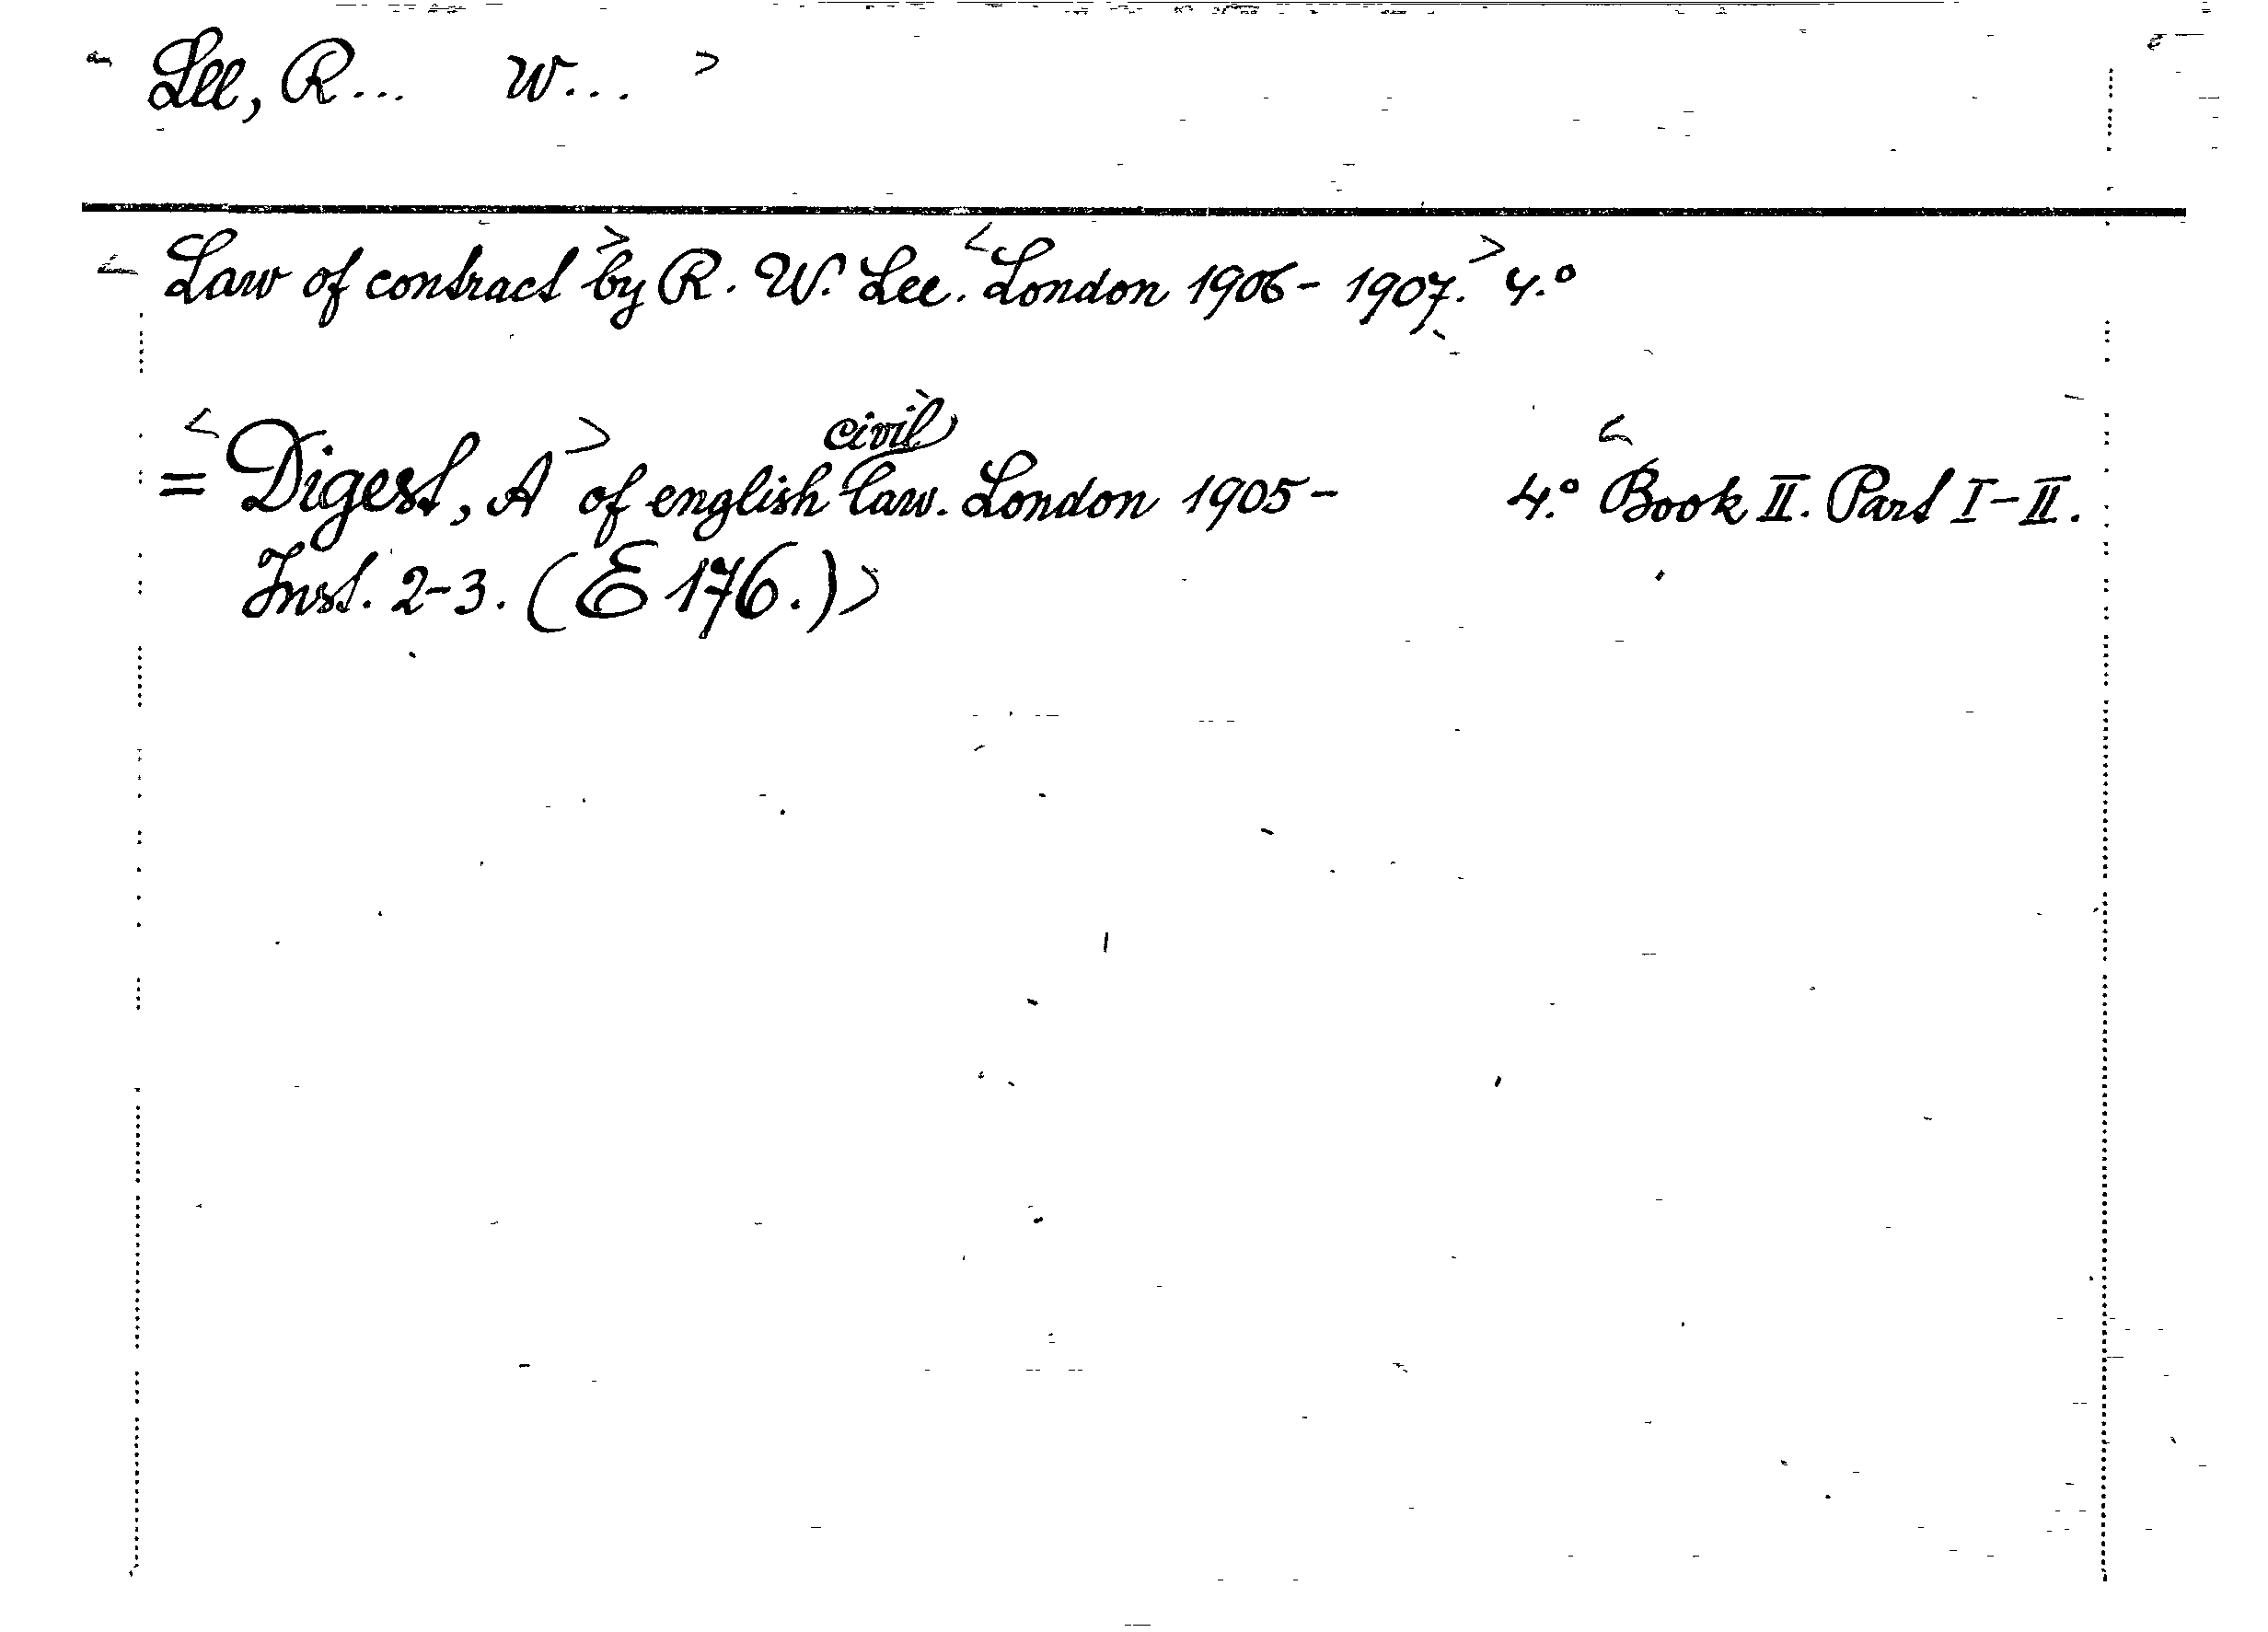 < Lee, R... W... >
< Law of contract > by R. W. Lee. < London 1906 - 1907. > 4.°
= < Digest, A > of english civil law. London 1905 - 4.° < Book II. Part I-II.
Inst. 2-3. (E 176.) >